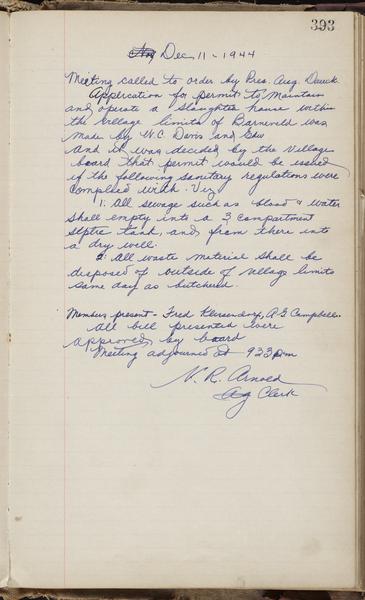 393
Dec 11 - 1944
Meeting called to order by Pres. Aug.
Application for permit to Maintain
and operate a slaughter house within
the village limits of Barneveld was
made by W.C. Davis and
And it was decided by the Village
board that permit would be issued
if the following sanitary regulations were
complied with. Viz
1. All sewage such as blood & water
shall empty into a 3 compartment
septic tank, and from there into
a dry well.
2. All waste material shall be
disposed of outside of village limits
same day as butchered.
Members present - Fred A G Campbell.
All bill presented were
approved by board
Meeting adjourned at 9 23 pm
N. R. Arnold
Clerk